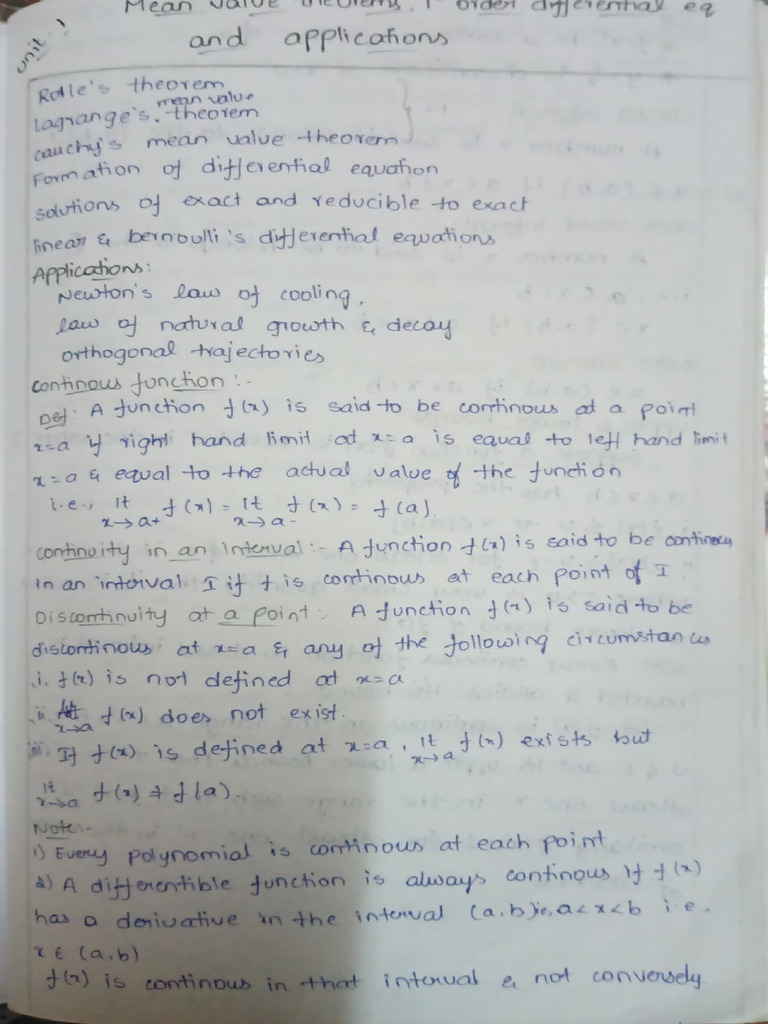 Mean value theorems, 1 order differential eq
and applications
unit-1
Rolle's theorem
Lagrange's mean value theorem
cauchy's mean value theorem
Formation of differential equation
solutions of exact and reducible to exact
linear & bernoulli's differential equations
Applications:
Newton's law of cooling,
law of natural growth & decay
orthogonal trajectories
continous function :-
Def: A function f(x) is said to be continous at a point
x=a if right hand limit at x=a is equal to left hand limit
x=a & equal to the actual value of the function
i.e., lt x→a+ f(x) = lt x→a- f(x) = f(a).
continuity in an Interval:- A function f(x) is said to be continous
in an interval I if f is continous at each point of I.
Discontinuity at a point:- A function f(x) is said to be
discontinous at x=a & any of the following circumstances
i. f(x) is not defined at x=a
ii. lt x→a f(x) does not exist.
iii. If f(x) is defined at x=a, lt x→a f(x) exists but
lt x→a f(x) ≠ f(a).
Note:-
1) Every polynomial is continous at each point
2) A differentible function is always continous if f(x)
has a derivative in the interval (a,b) ie, a<x<b i.e.
x ∈ (a,b)
f(x) is continous in that interval & not conversely